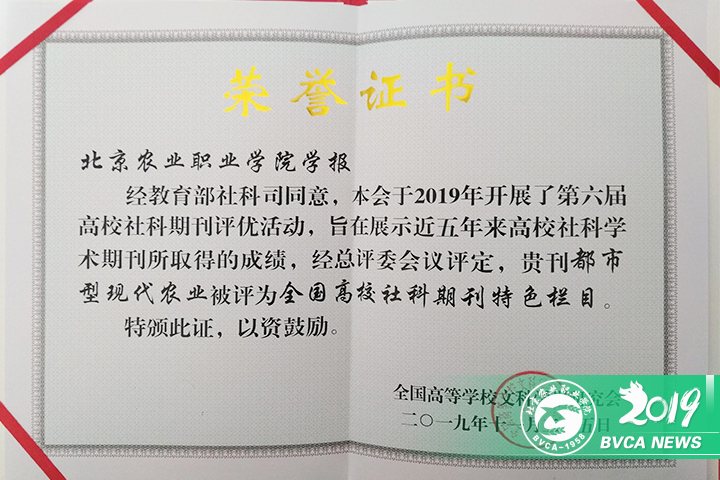 荣誉证书
北京农业职业学院学报
经教育部社科司同意，本会于2019年开展了第六届
高校社科期刊评优活动，旨在展示近五年来高校社科学
术期刊所取得的成绩，经总评委会议评定，贵刊都市
型现代农业被评为全国高校社科期刊特色栏目。
特颁此证，以资鼓励。
全国高等学校文科
究会
二〇一九年十一月
五日
北京农业职业学院
BVCA-1958
2019
BVCA NEWS